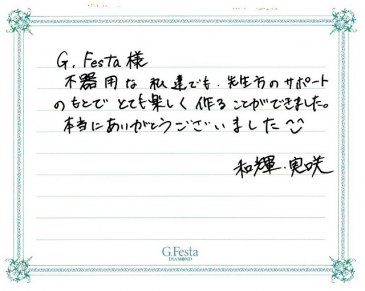 G. Festa 様
不器用な私達でも、先生方のサポート
のもとでとても楽しく作ることができました。
本当にありがとうございました^^
和輝・実咲
G.Festa
DIAMOND